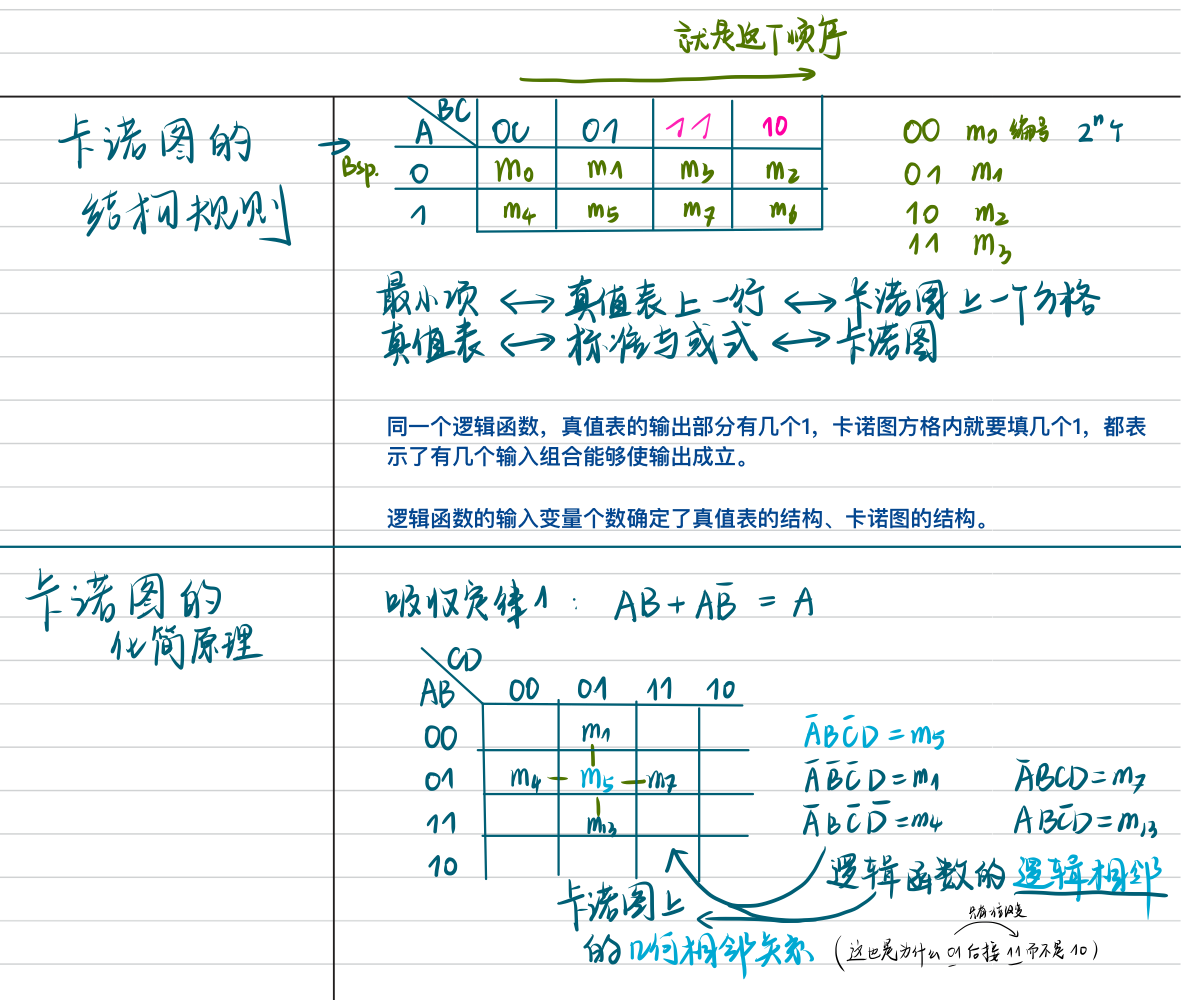 就是这个顺序
卡诺图的
结构规则
Bsp.
A BC 00 01 11 10
0 m₀ m₁ m₃ m₂
1 m₄ m₅ m₇ m₆
00 m₀ 编号 2ⁿ个
01 m₁
10 m₂
11 m₃
最小项 ↔ 真值表上一行 ↔ 卡诺图上一个方格
真值表 ↔ 标准与或式 ↔ 卡诺图
同一个逻辑函数，真值表的输出部分有几个1，卡诺图方格内就要填几个1，都表
示了有几个输入组合能够使输出成立。
逻辑函数的输入变量个数确定了真值表的结构、卡诺图的结构。
卡诺图的
化简原理
吸收定律1: AB + AB̅ = A
CD
AB 00 01 11 10
00 m₁
01 m₄ m₅ m₇
11 m₁₃
10
A̅BC̅D = m₅
A̅B̅C̅D = m₁ A̅BCD = m₇
A̅BC̅D̅ = m₄ ABC̅D = m₁₃
逻辑函数的逻辑相邻
卡诺图上
的几何相邻关系
(这也是为什么 01 后接 11 而不是 10)